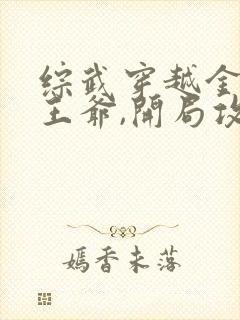 综武穿越金
王爷,开局攻
嫣香未落